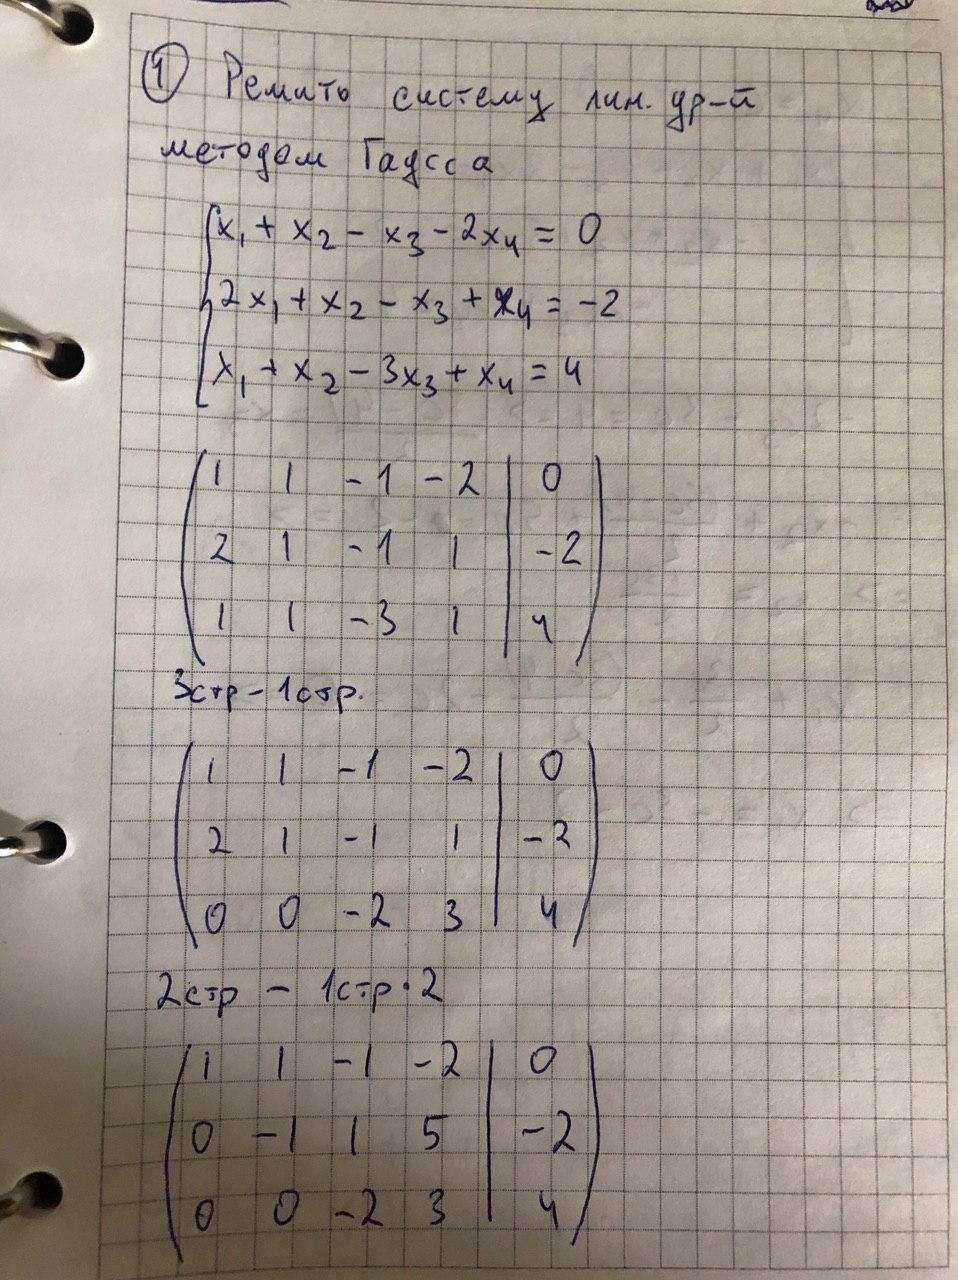 ① Решить систему лин. ур-й
методом Гаусса
x₁ + x₂ - x₃ - 2x₄ = 0
2x₁ + x₂ - x₃ + x₄ = -2
x₁ + x₂ - 3x₃ + x₄ = 4
1 1 -1 -2 | 0
2 1 -1 1 | -2
1 1 -3 1 | 4
3стр - 1стр.
1 1 -1 -2 | 0
2 1 -1 1 | -2
0 0 -2 3 | 4
2стр - 1стр·2
1 1 -1 -2 | 0
0 -1 1 5 | -2
0 0 -2 3 | 4